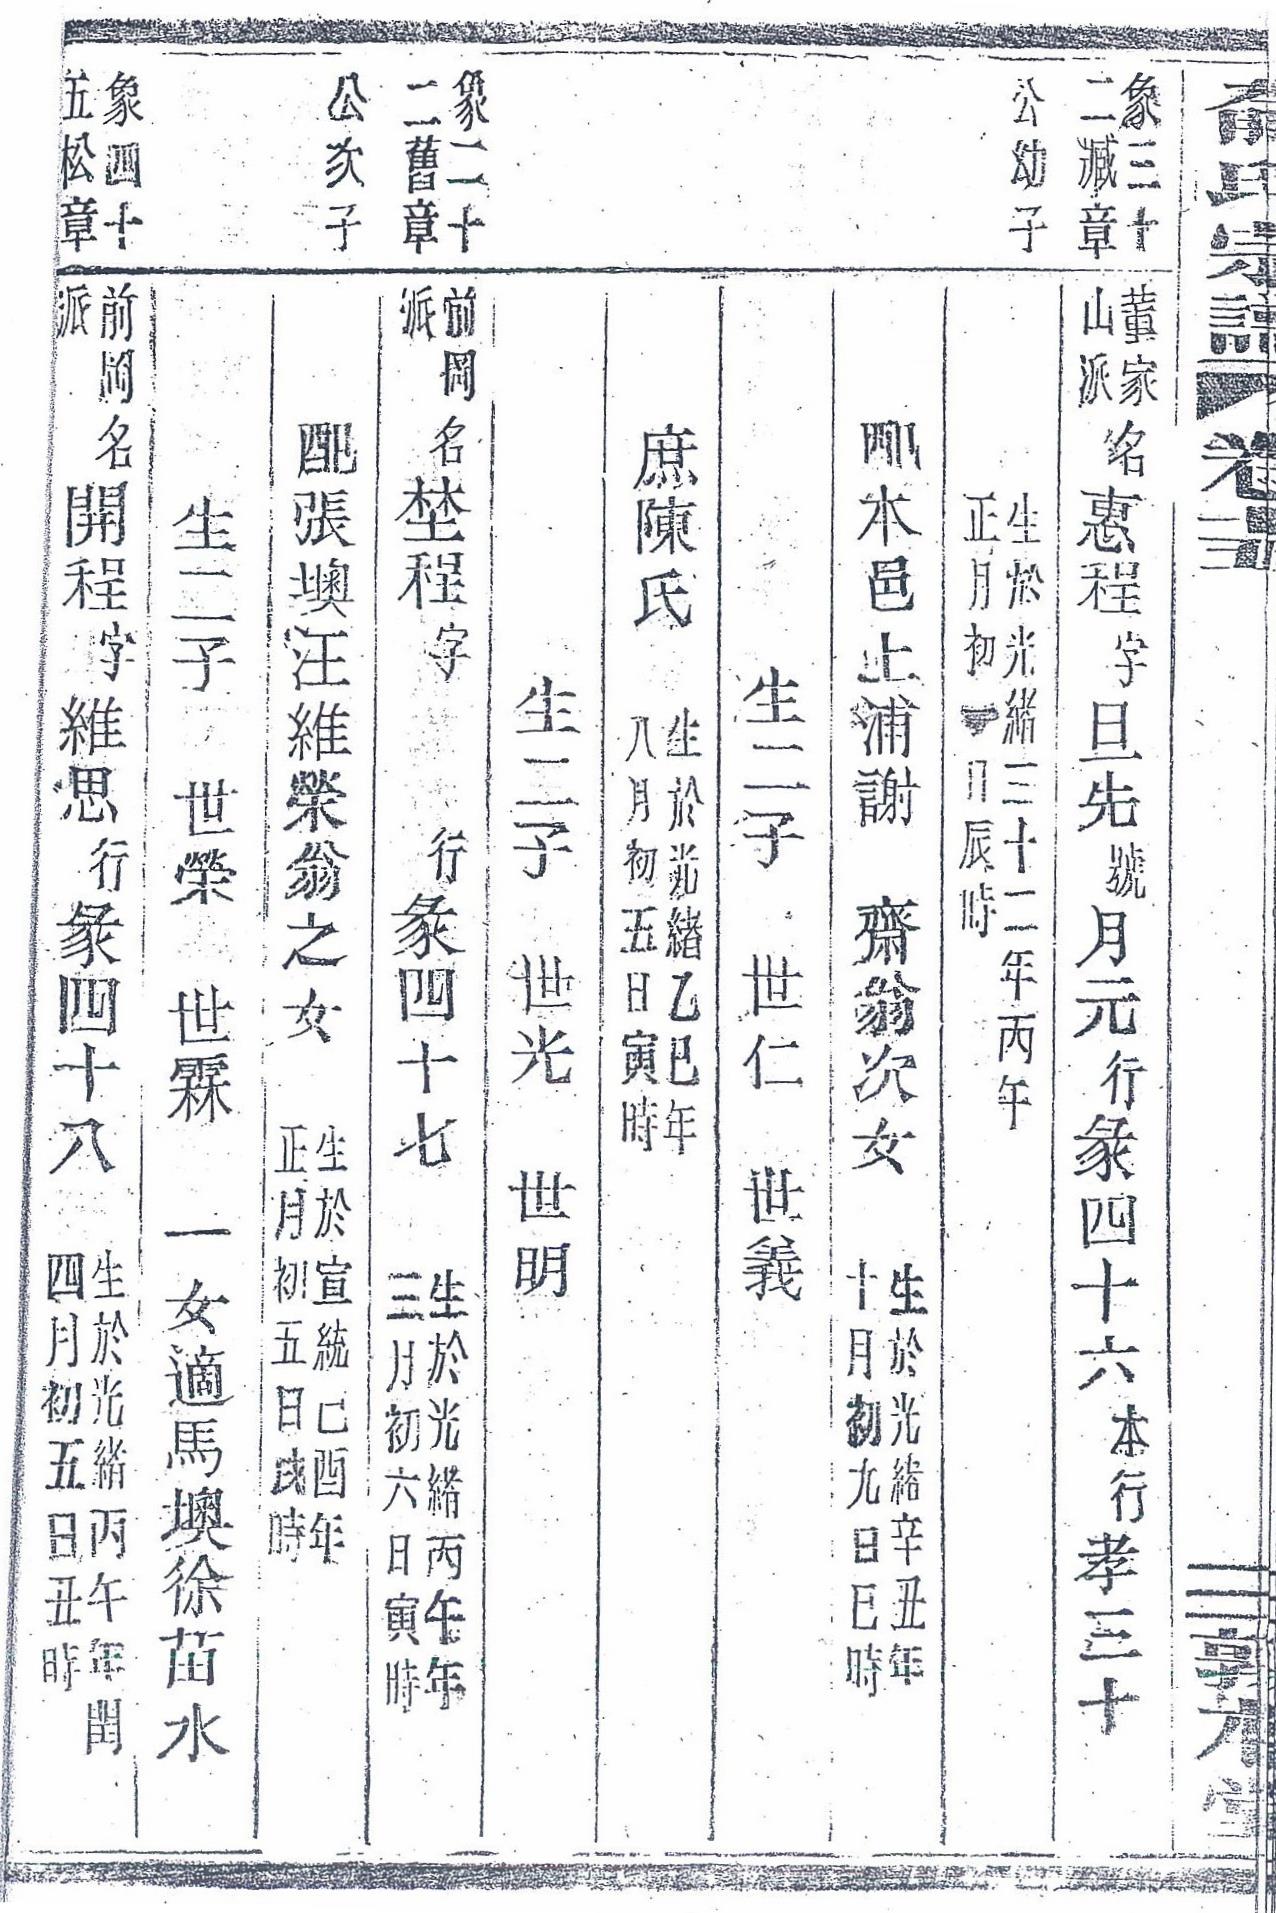 俞氏宗譜 卷三
象三十
二臧章
公幼子
董家
山派
名惠程 字旦先 號月元 行彖四十六 本行孝三十
生於光緒三十二年丙午
正月初 日辰時
配本邑上浦謝 齋翁次女
生於光緒辛丑年
十月初九日巳時
生二子 世仁 世義
庶陳氏
生於光緒乙巳年
八月初五日寅時
生二子 世光 世明
象二十
二舊章
公次子
前岡
派
名埜程 字 行彖四十七
生於光緒丙午年
三月初六日寅時
配張墺汪維榮翁之女
生於宣統己酉年
正月初五日戌時
生二子 世榮 世霖 一女適馬墺徐苗水
象四十
五松章
前岡
派
名開程 字維思 行彖四十八
生於光緒丙午年閏
四月初五日丑時